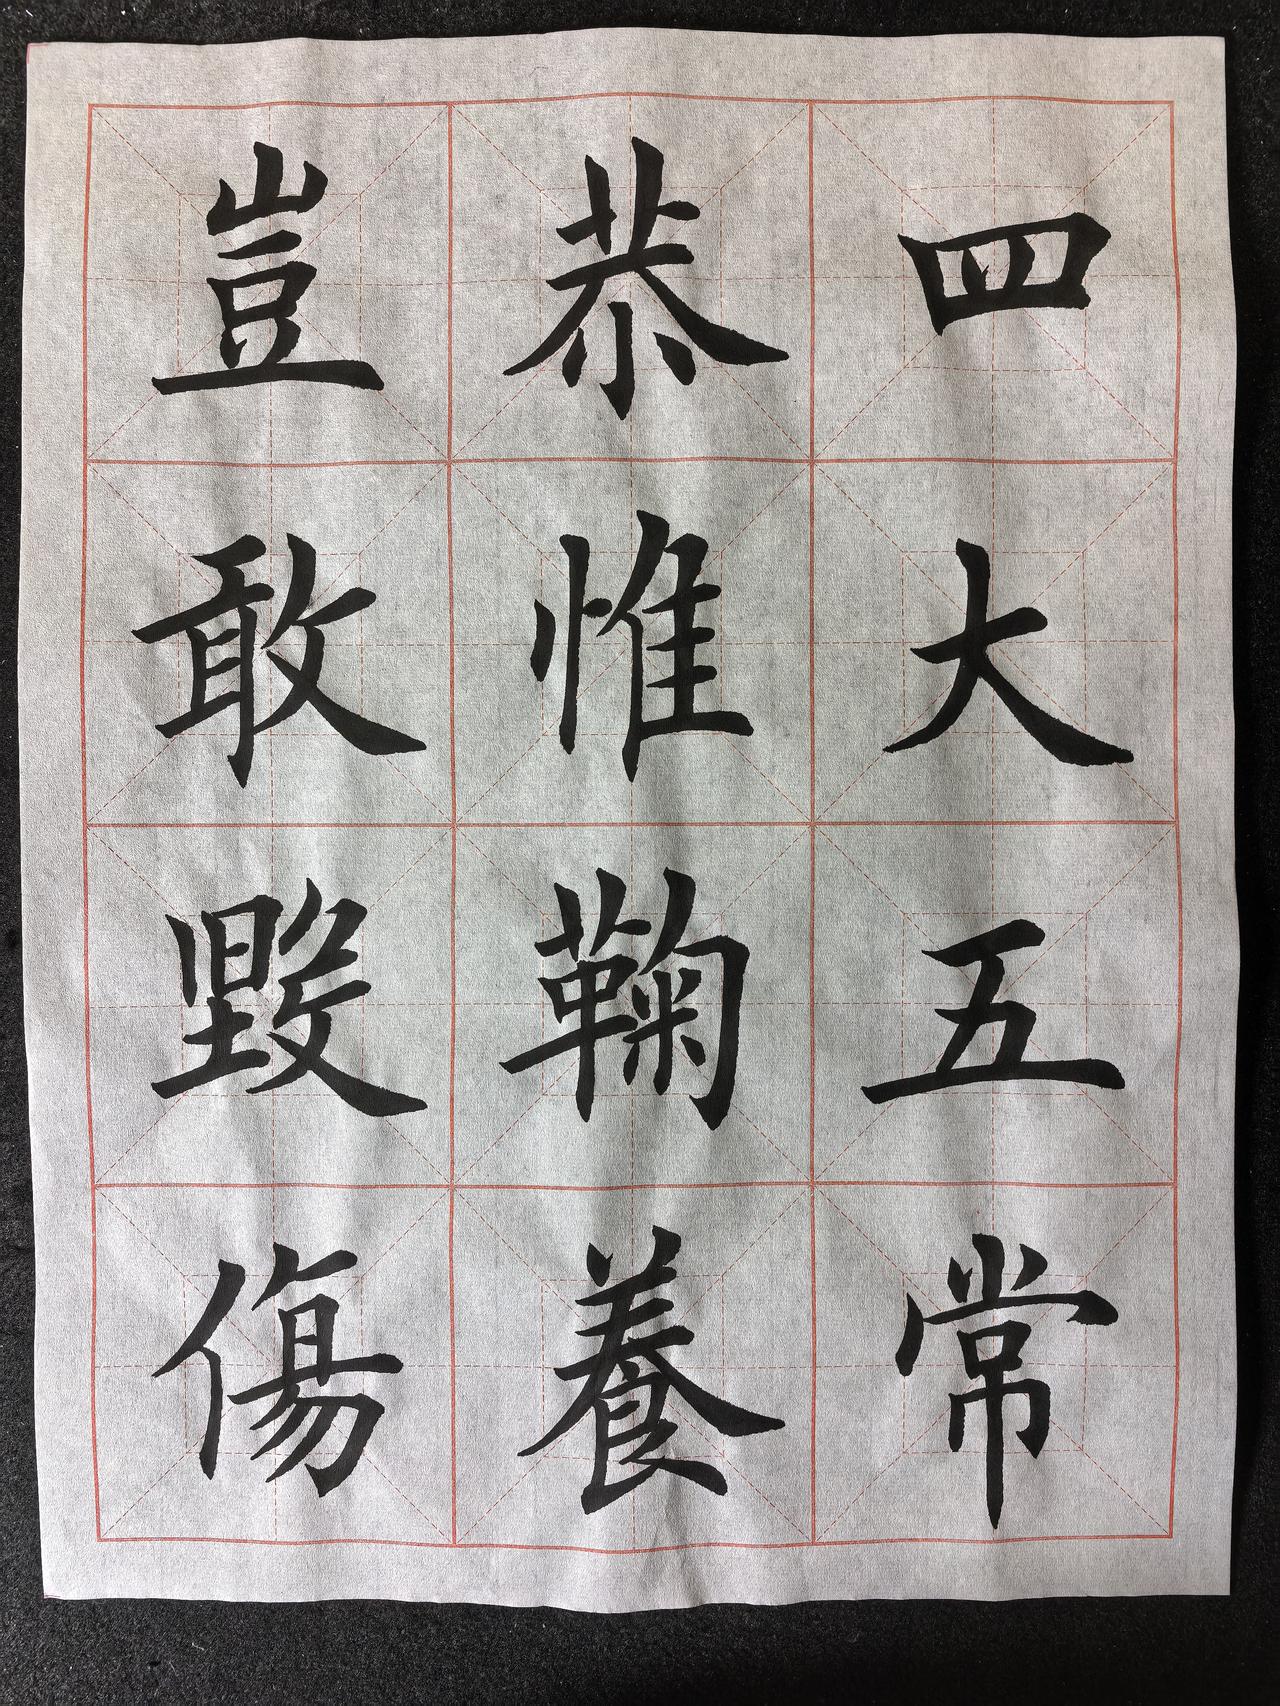 四大五常
恭惟鞠養
豈敢毀傷